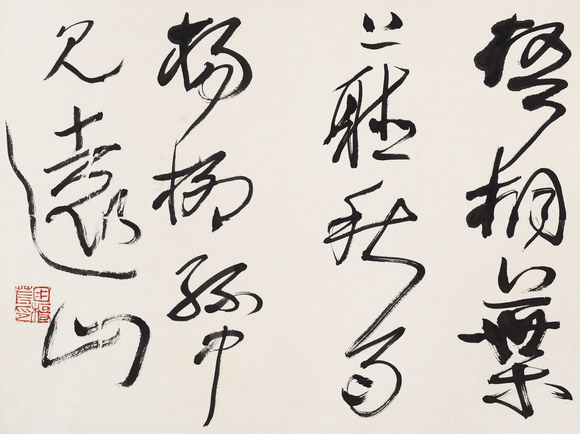 梧桐葉
上聽秋雨
楊柳絲中
見遠山